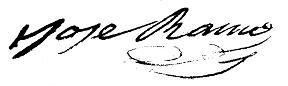 Jose Ramos